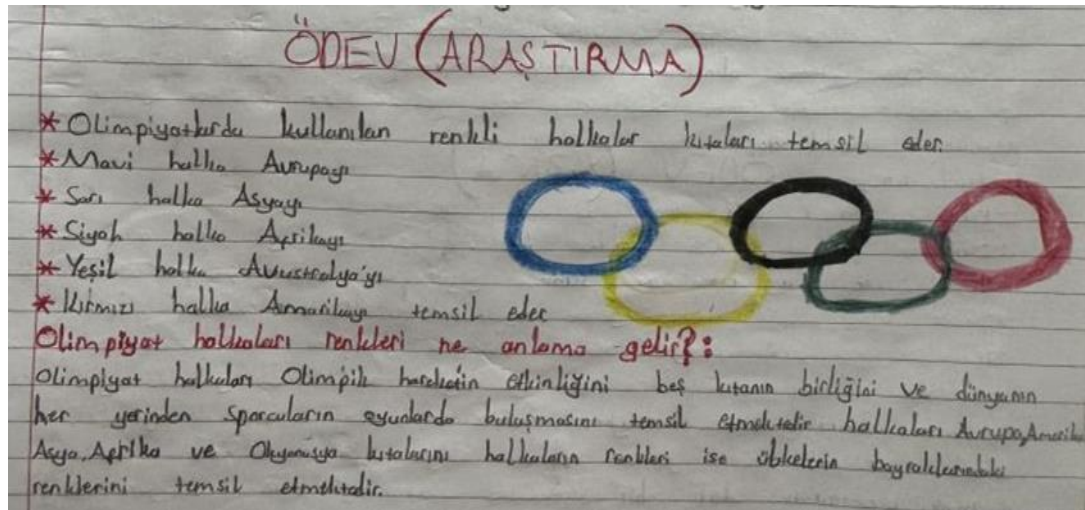 ÖDEV (ARAŞTIRMA)
* Olimpiyatlarda kullanılan renkli halkalar kıtaları temsil eder.
* Mavi halka Avrupayı
* Sarı halka Asyayı
* Siyah halka Afrikayı
* Yeşil halka Avustralya'yı
* Kırmızı halka Amarikayı temsil eder
Olimpiyat halkaları renkleri ne anlama gelir?:
Olimpiyat halkaları Olimpik hareketin etkinliğini beş kıtanın birliğini ve dünyanın
her yerinden sporcuların oyunlarda buluşmasını temsil etmektedir halkaları Avrupa, Amerika
Asya, Afrika ve Okyanusya kıtalarını halkaların renkleri ise ülkelerin bayraklarındaki
renklerini temsil etmektedir.